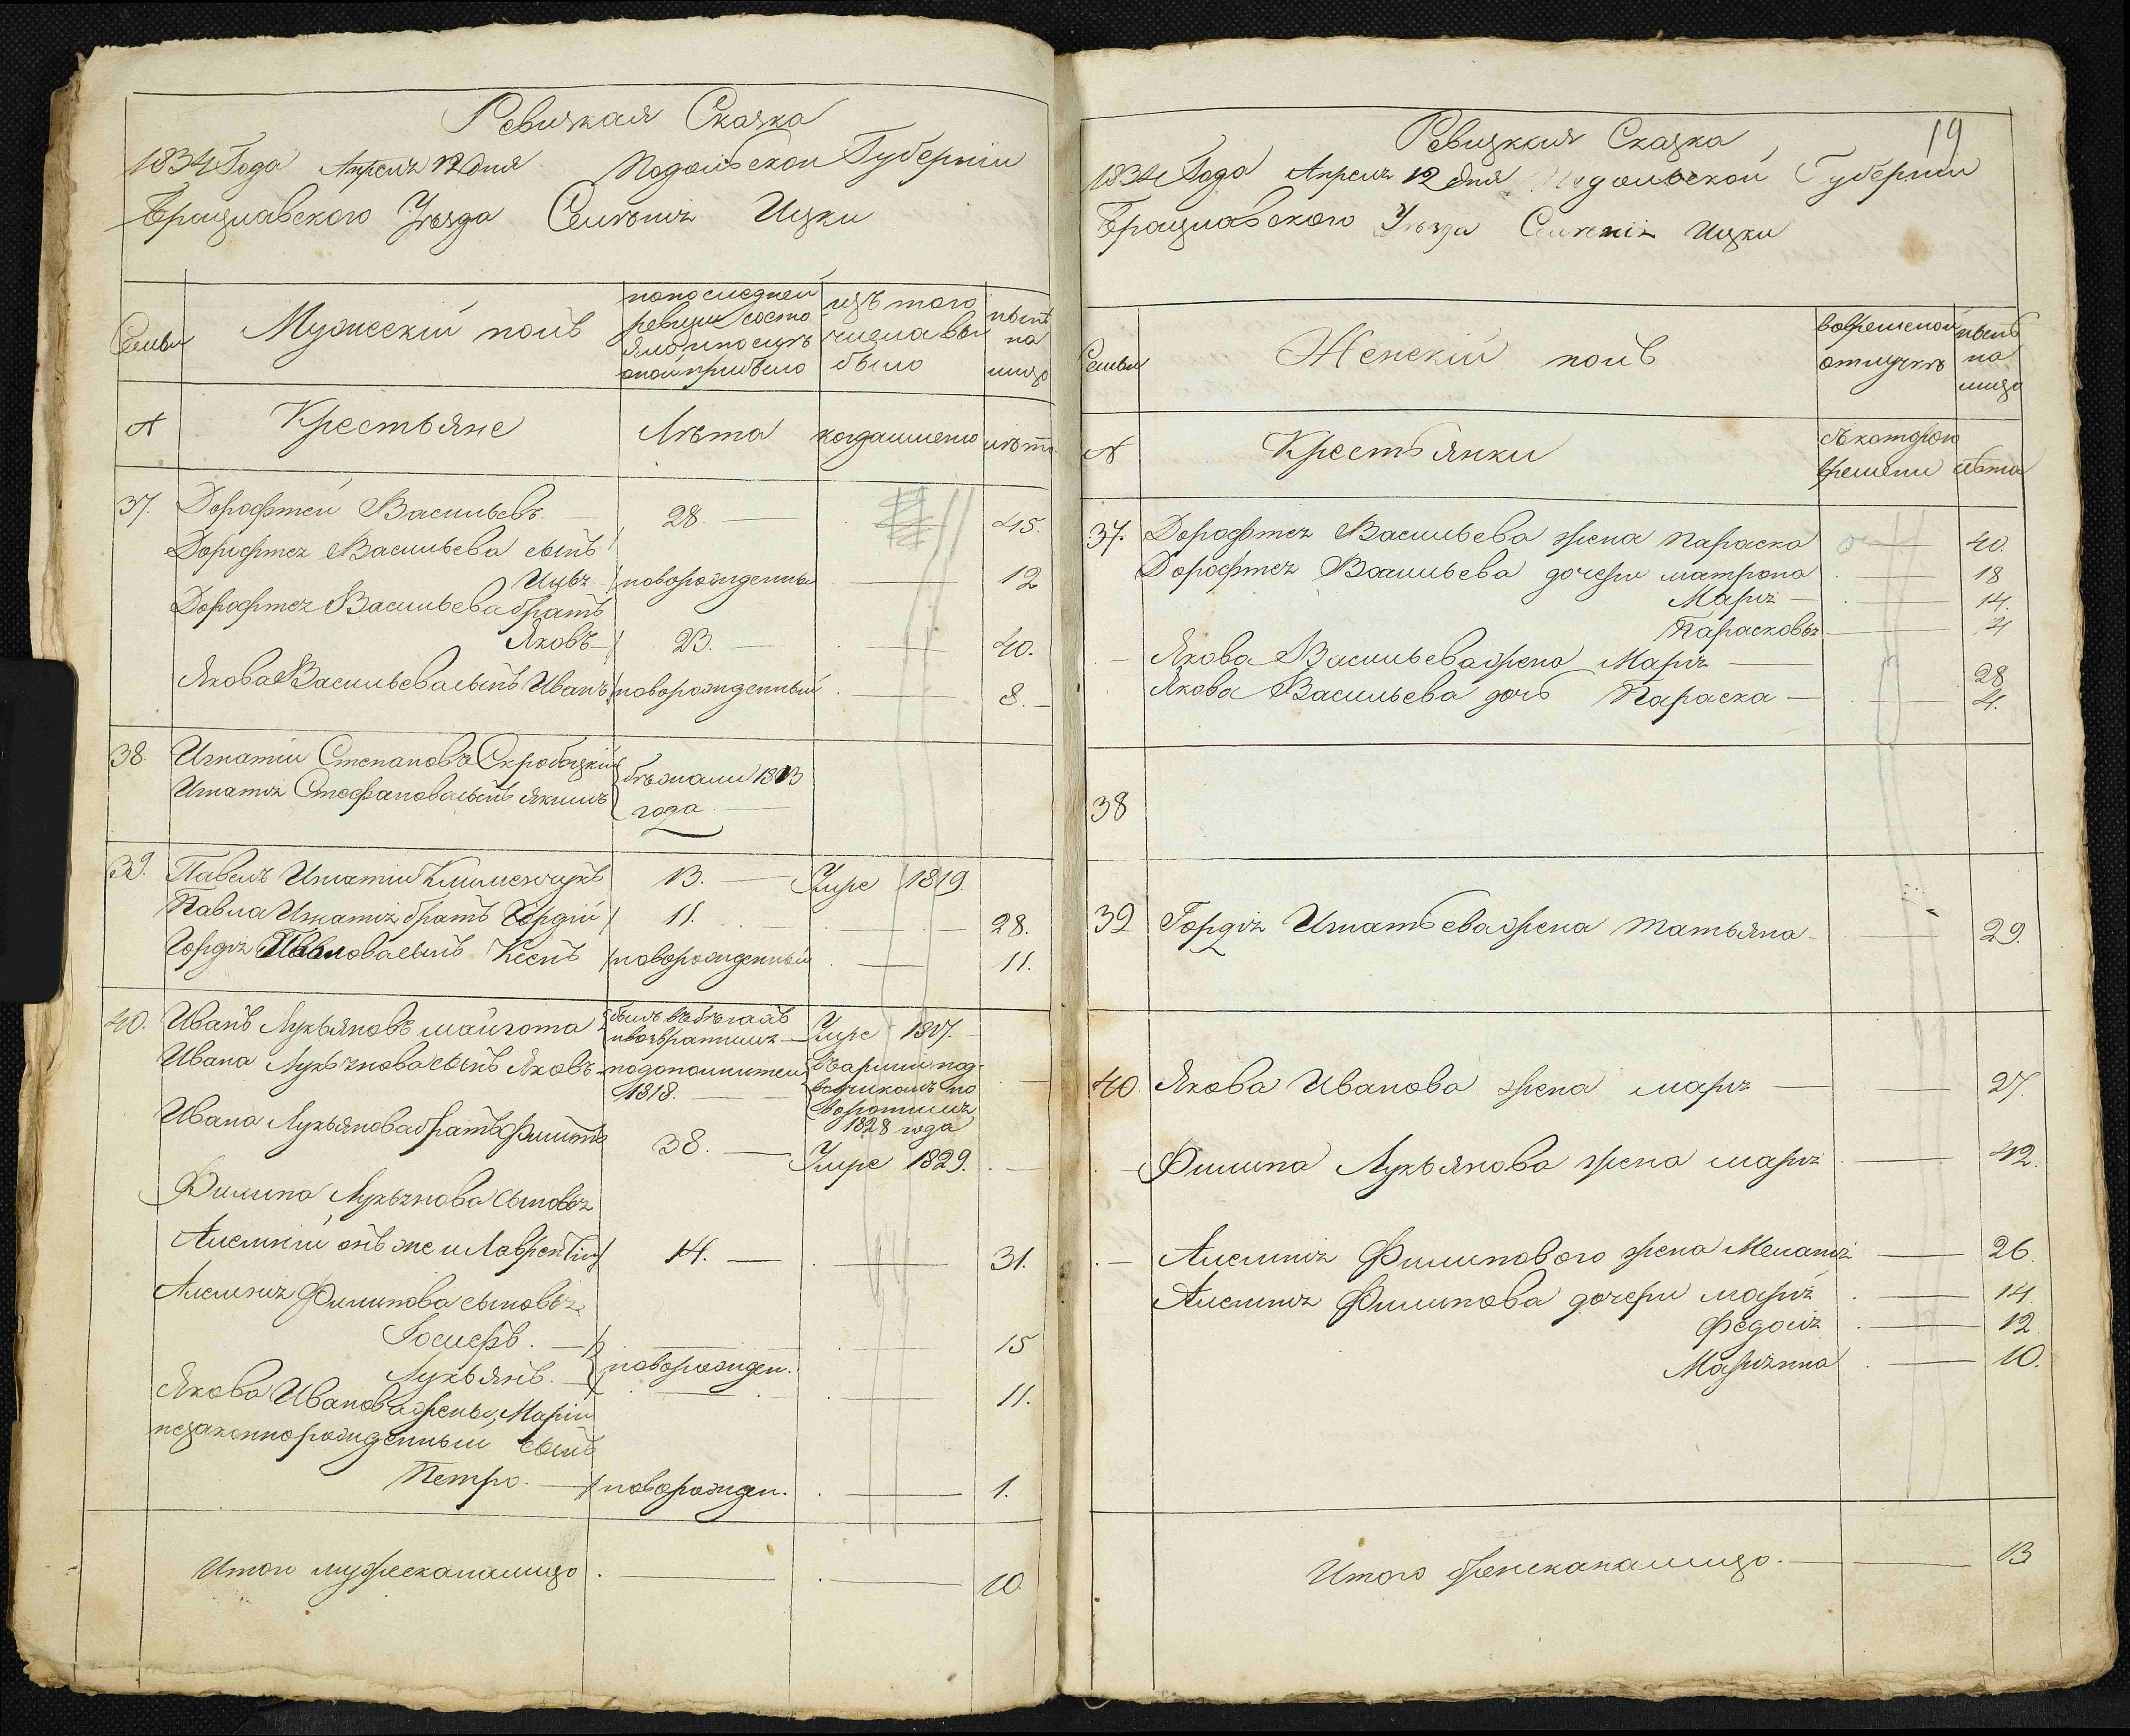 Ревизкая Сказка
1834 Года Апреля 12 дня Подольской Губернии
Брацлавского Уезда Селения Ицки
Семьи
Мужескій полъ
попоследней
ревизіи состо
яло ипослѣ
оной прибыло
изъ того
числа вы
было
нынѣ
на
лицо
№
Крестьяне
Лѣта
когда имено
лѣта
37. Дорофтей Васильевъ. 28. 45.
Дорофтея Васильева сынъ
новорожденны 12
Дорофтея Васильева братъ
Яковъ 23. 40.
Якова Васильева сынъ Иванъ новорожденный 8.
38. Игнатій Степановъ Скробацкій бѣжали 1813
Игнатія Стефанова сынъ Якимъ года
39. Павелъ Игнатіи Климончукъ 13. Умре 1819.
Павла Игнатія братъ Гордій 11. 28.
Гордія Павлова сынъ новорожденный 11.
40. Иванъ Лукьяновъ былъ въ бѣгахъ
ивозвратился Умре 1817.
Ивана Лукьянова сынъ Яковъ подополнител
1818.
въ арміи под
водчикомъ
1828 года
Ивана Лукьянова братъ Филипъ 38. Умре 1829.
Филипа Лукьянова сыновья
Алексѣй онъ же и Лаврентій 14. 31.
Филипова сыновья
Іосифъ. 15
Лукьянъ. новорожден. 11.
Якова Иванова жены Маріи
незаконнорожденный сынъ
Петро. новорожден. 1.
Итого мужеска налицо 10
19
Ревизкая Сказка
1834 Года Апреля 12 дня Подольской Губернии
Брацлавского Уезда Селения Ицки
Семьи
Женскій полъ
вовременой
отлучкѣ
нынѣ
на
лицо
№
Крестьянки
съкоторого
времени
лѣта
37. Дорофтея Васильева жена Параска 40.
Дорофтея Васильева дочери Матрона 18
Марія 14.
Парасковья 4
Якова Васильева жена Марія 28
Якова Васильева дочь Параска 4.
38
39 Гордія Игнатьева жена Татьяна 29.
40. Якова Иванова жена Марія 27.
Филипа Лукьянова жена Марія 42.
Филипового жена Меланія 26.
Филипова дочери Марія 14.
Федосія 12
Маріянна 10.
Итого женска налицо. 13